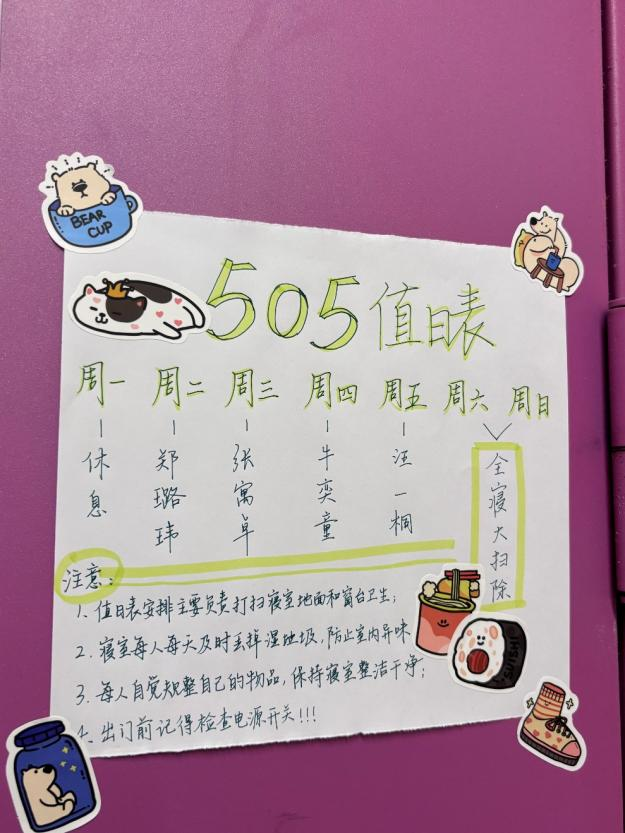 BEAR
CUP
505值日表
周一 周二 周三 周四 周五 周六 周日
休息
郑璐玮
张寓卓
牛奕童
汪一桐
全寝大扫除
注意:
1. 值日表安排主要负责打扫寝室地面和窗台卫生;
2. 寝室每人每天及时丢掉湿垃圾,防止室内异味
3. 每人自觉规整自己的物品,保持寝室整洁干净;
4. 出门前记得检查电源开关!!!
SUSHI